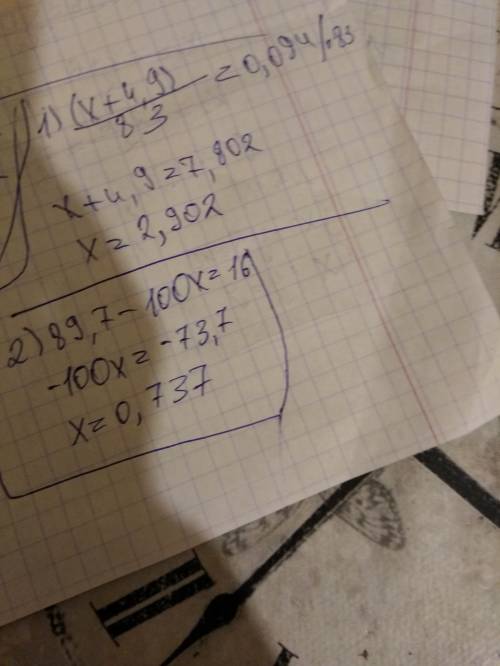 1) (x+4,9)/83 = 0,094 /·83
x+4,9=7,802
x=2,902
2) 89,7-100x=16
-100x=-73,7
x=0,737